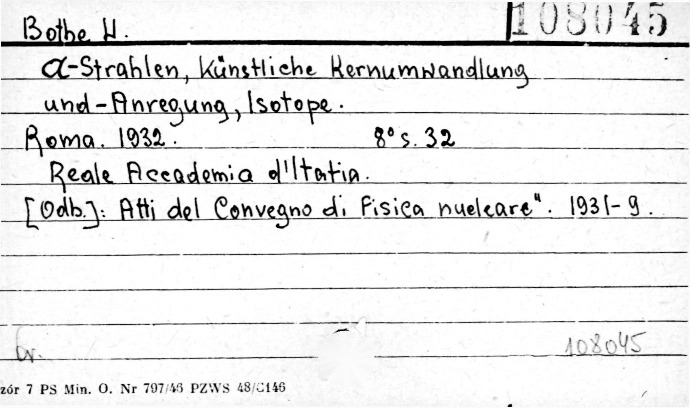 Bothe W.
108045
α-Strahlen, Künstliche Kernumwandlung
und-Anregung, Isotope.
Roma. 1932. 8° s. 32
Reale Accademia d'Italia.
[Odb.]: Atti del Convegno di Fisica nucleare". 1931-9.
108045
zór 7 PS Min. O. Nr 797/46 PZWS 48/C146